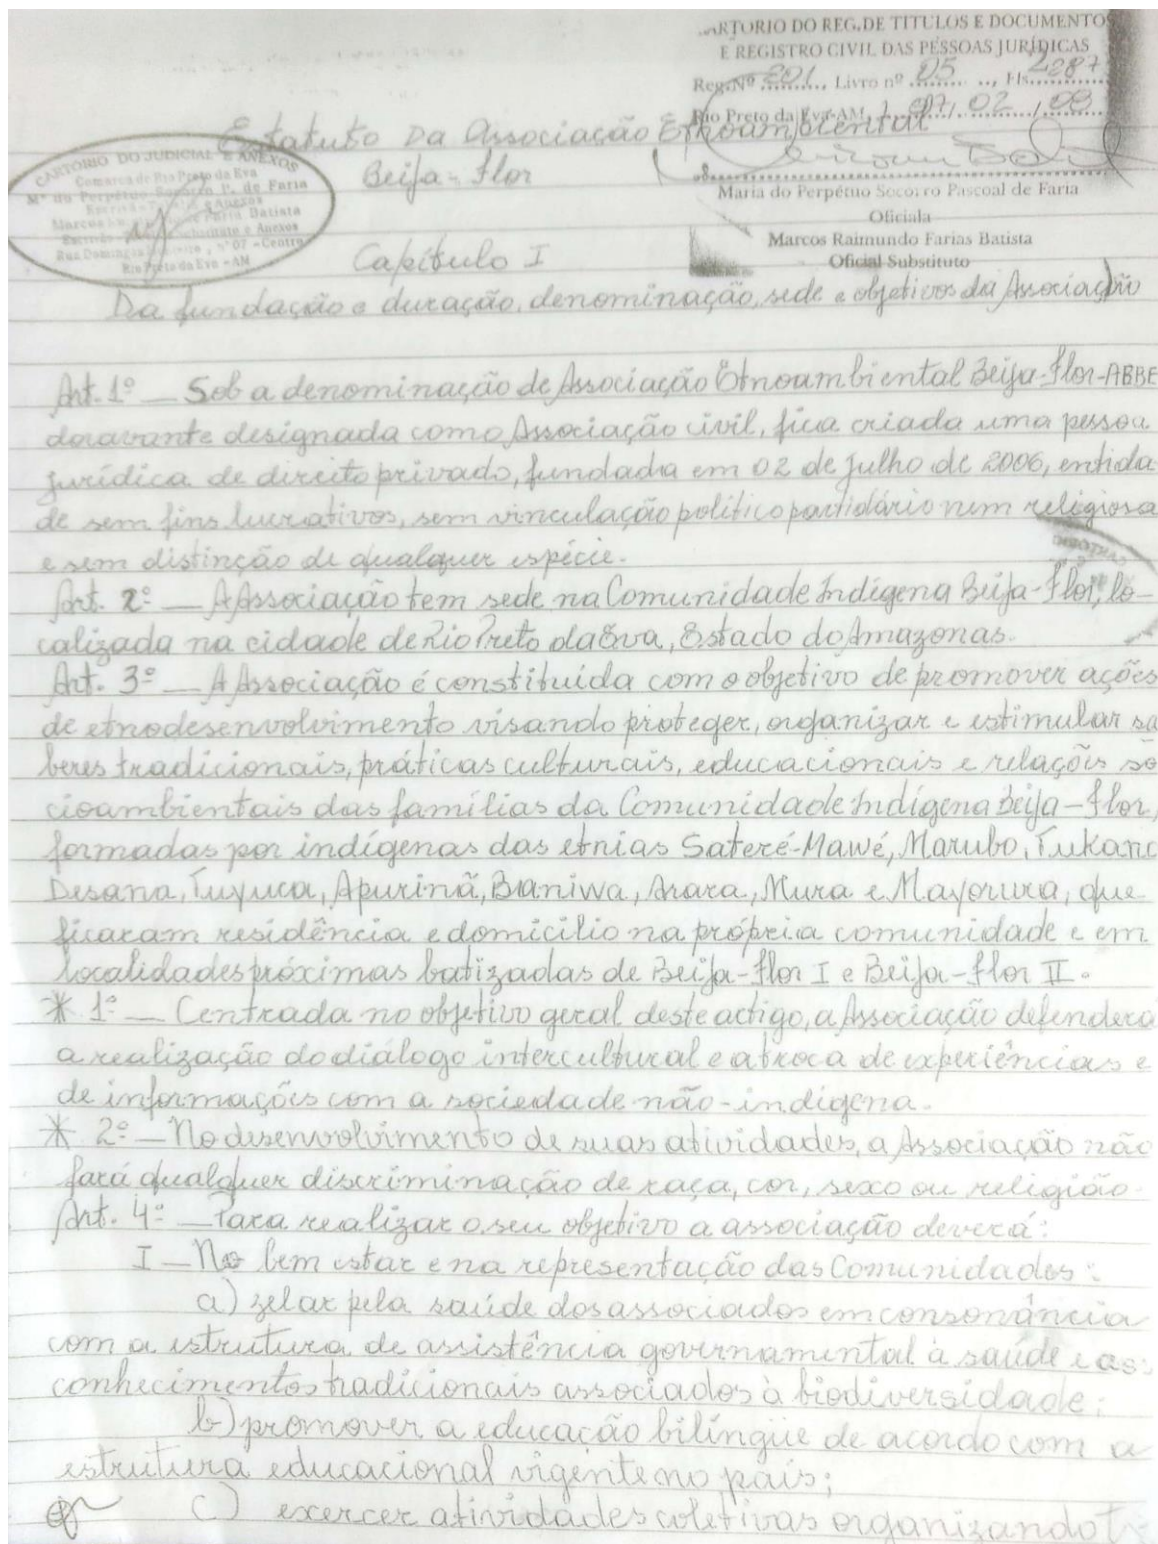 CARTORIO DO REG. DE TITULOS E DOCUMENTOS
E REGISTRO CIVIL DAS PESSOAS JURÍDICAS
Reg. Nº 201, Livro nº 05, Fls.
Rio Preto da Eva-AM, 07, 02, 09
Maria do Perpétuo Socorro Pascoal de Faria
Oficiala
Marcos Raimundo Farias Batista
Oficial Substituto
CARTORIO DO JUDICIAL E ANEXOS
Comarca de Rio Preto da Eva
Mª do Perpétuo Socorro P. de Faria
Rio Preto da Eva - AM
Estatuto Da Associação Etnoambiental
Beija-Flor
Capítulo I
Da fundação e duração, denominação, sede e objetivos da Associação
Art. 1º — Sob a denominação de Associação Etnoambiental Beija-Flor-ABBE
doravante designada como Associação civil, fica criada uma pessoa
jurídica de direito privado, fundada em 02 de julho de 2006, entida-
de sem fins lucrativos, sem vinculação político partidário nem religiosa
e sem distinção de qualquer espécie.
Art. 2º — A Associação tem sede na Comunidade Indígena Beija-Flor, lo-
calizada na cidade de Rio Preto da Eva, Estado do Amazonas.
Art. 3º — A Associação é constituída com o objetivo de promover ações
de etnodesenvolvimento visando proteger, organizar e estimular sa
beres tradicionais, práticas culturais, educacionais e relações so
cioambientais das famílias da Comunidade Indígena Beija-Flor,
formadas por indígenas das etnias Sateré-Mawé, Marubo, Tukano
Desana, Tuyuca, Apurinã, Baniwa, Arara, Mura e Mayoruna, que
ficaram residência e domicílio na própria comunidade e em
localidades próximas batizadas de Beija-Flor I e Beija-Flor II.
* 1º — Centrada no objetivo geral deste artigo, a Associação defenderá
a realização do diálogo intercultural e a troca de experiências e
de informações com a sociedade não-indígena.
* 2º — No desenvolvimento de suas atividades, a Associação não
fará qualquer discriminação de raça, cor, sexo ou religião.
Art. 4º — Para realizar o seu objetivo a associação deverá:
I — No bem estar e na representação das Comunidades:
a) zelar pela saúde dos associados em consonância
com a estrutura de assistência governamental à saúde e aos
conhecimentos tradicionais associados à biodiversidade;
b) promover a educação bilíngüe de acordo com a
estrutura educacional vigente no país;
c) exercer atividades coletivas organizando